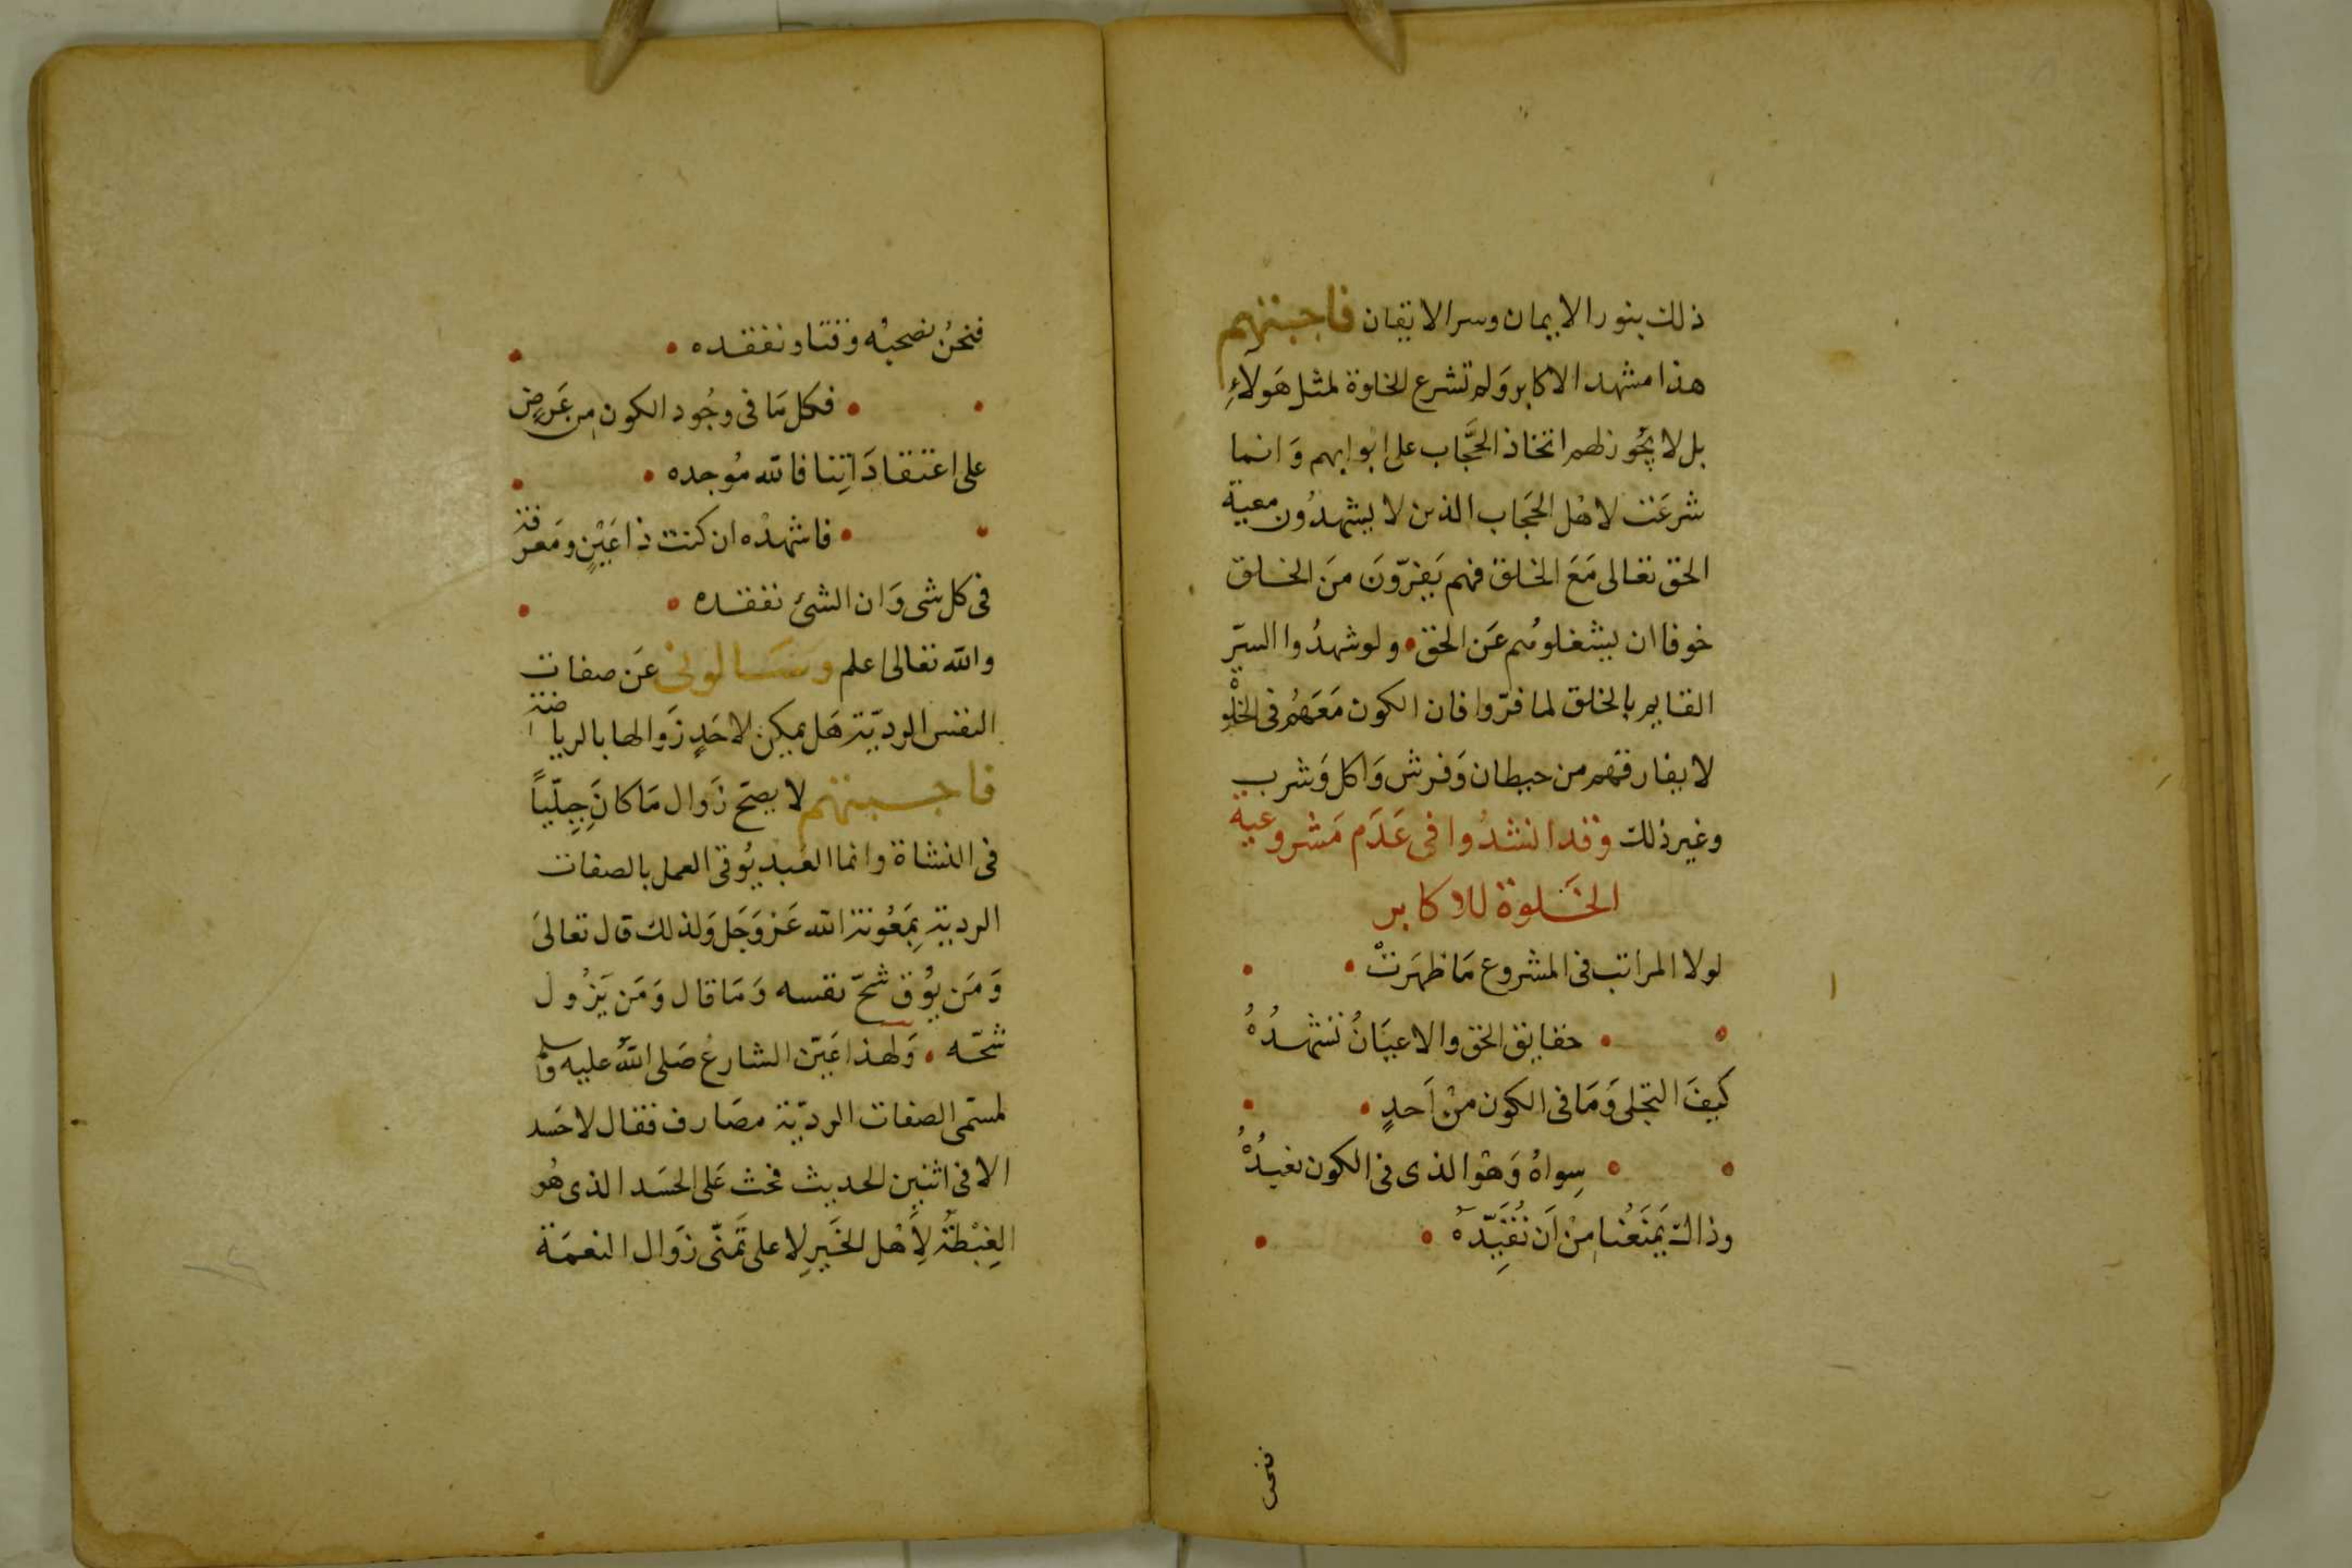 ذلك بنور الايمان وسر الايقان فاجبتهم
هذا مشهد الاكابر وَلم تشرع الخلوة لمثل هَولآءِ
بل لا يجُوز لهم اتخاذ الحجَّاب على ابوابهم وَانما
شرعَت لاهْل الحجَاب الذين لا يشهدُون معية
الحق تعالى مَعَ الخلق فهم يَفرّونَ منَ الخلق
خوفا ان يشغلوهم عَن الحق • ولو شهدُوا السرّ
القايم بالخلق لما فرّوا فان الكون مَعَهُم فى الخلْوة
لا يفارقهم من حيطان وَفرش وَاكل وَشرب
وغير ذلك وقد انشدُوا فى عَدَم مَشروعية
الخَلوة للاكابر
لولا المراتب فى المشروع مَا ظهَرتْ •
• حقايق الحق والاعيَانُ تشهدُهُ
كيفَ التجلى وَمَا فى الكون منْ اَحدٍ •
• سِواهُ وَهْوَ الذى فى الكون نعبدُهُ
وذاك يَمنَعُنا مِنْ اَن نُقَيِّدهُ •
فنحن
فنحْنُ نصحبُه وقتا ونفقده •
• فكل مَا فى وجُود الكون من عَرضٍ
على اعتقادَاتِنا فالله مُوجده •
• فاشهدْه ان كنت ذا عَيْنٍ ومَعرفة
فى كل شى وَان الشئ نفقده •
والله تعالى اعلم وسَالونى عَن صفات
النفس الرديّة هَل يمكِن لاحَدٍ زَوالها بالرياضة
فاجبتهم لا يصحّ زَوال مَا كانَ جِبِلّيّاً
فى النشاة وانما العَبد يُوقى العمل بالصفات
الردية بِمَعُونة الله عَز وَجَل وَلذلك قال تعالىَ
وَمَن يوُق شحّ نفسه وَمَا قال وَمَن يَزُول
شحّه • وَلهذا عَيّن الشارعُ صَلى اللهُ عليه وسلم
لمستمى الصفات الرديّة مصَارف فقال لا حَسد
الا فى اثنين الحديث فحث عَلى الحسَد الذى هُو
الغِبْطَةُ لِأَهْل الخَيرِ لا على تَمنّى زوَال النعمَة